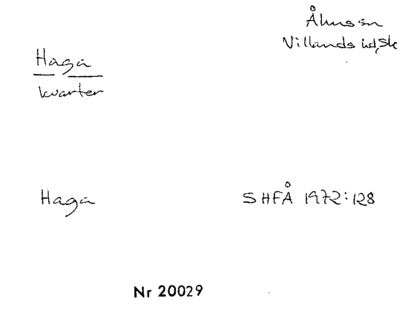 Åhus sn
Villands hd, Sk
Haga
kvarter
Haga
SHFÅ 1972:128
Nr 20029